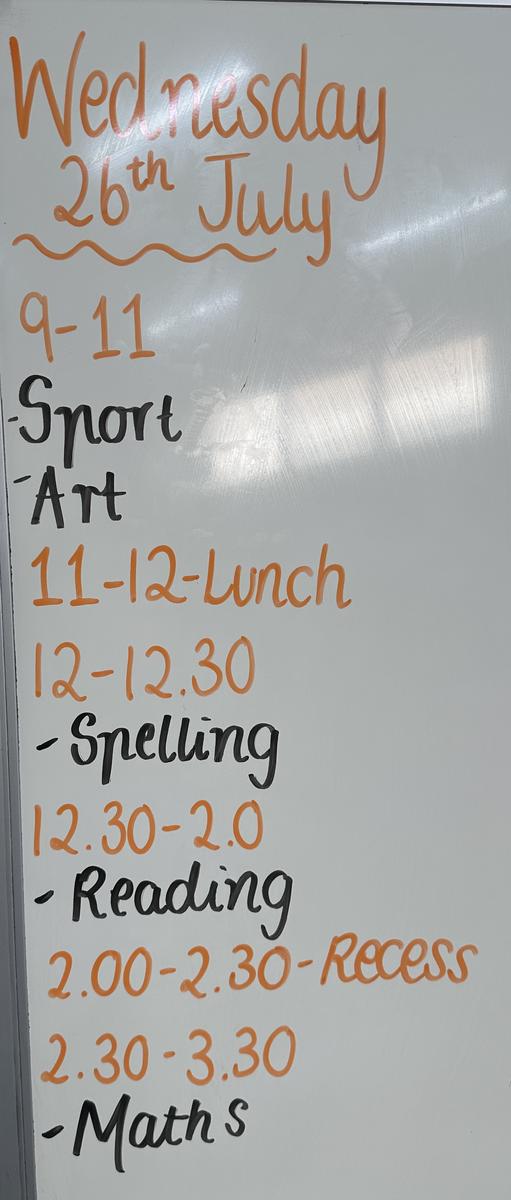 Wednesday
26th July
9-11
-Sport
-Art
11-12-Lunch
12-12.30
-Spelling
12.30-2.0
-Reading
2.00-2.30-Recess
2.30-3.30
-Maths